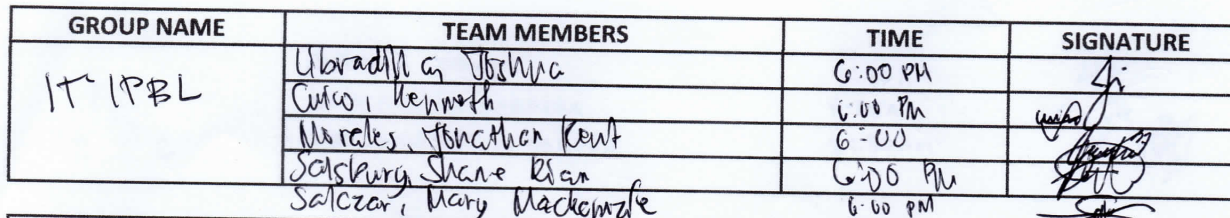 GROUP NAME TEAM MEMBERS TIME SIGNATURE
IT IPBL
Joshua 6:00 PM
Cuico, Kenneth 6:00 PM
Morales, Jonathan Kent 6:00
Salsburg, Shane Rian 6:00 PM
Salczar, Mary Mackenzie 6:00 PM